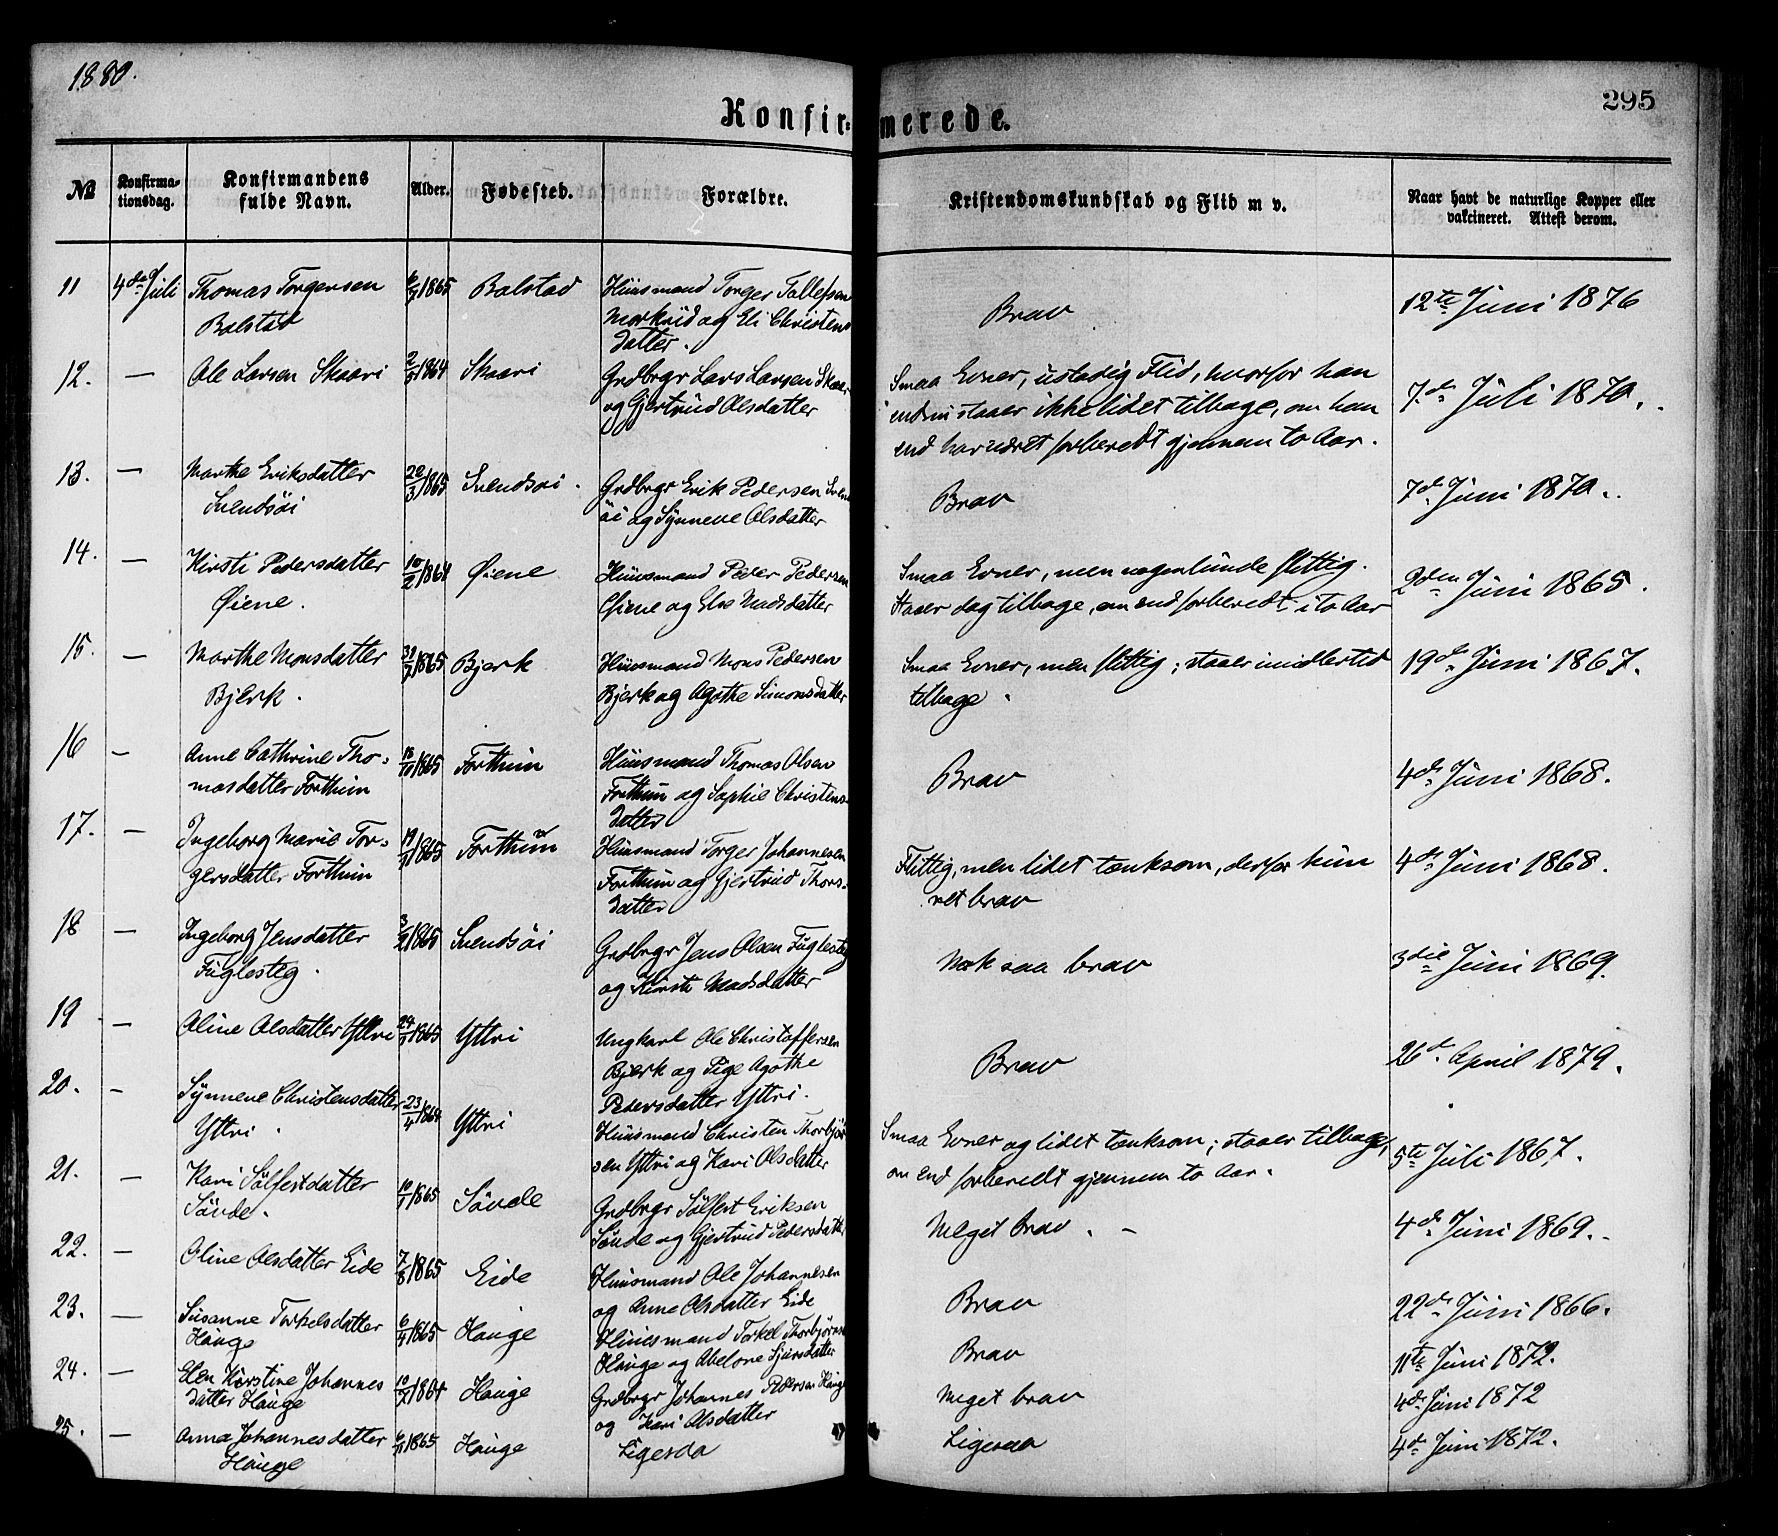 1880.
295
Konfir-
merede.
№
Konfirma-
tionsdag.
Konfirmandens
fulde Navn.
Alder.
Fødested.
Forældre.
Kristendomskundskab og Flid m v.
Naar havt de naturlige Kopper eller
vakcineret. Attest derom.
11 4de Juli Thomas Torgersen 6/9 1865 Balstad Huusmand Torger Tollefsen
Balstad Markvid og Eli Christens
datter.
Brav 12te Juni 1876
12. — Ole Larsen Skaari 2/3 1864 Skaari Grdbrgr Lars Larsen Skaar
og Gjertrud Olsdatter
Smaa Evner, ustadig Flid, hvorfor han
endnu staaer ikke lidet tilbage, om han
end har været forberedt gjennem to Aar.
7de Juli 1870.
13. — Marthe Eriksdatter 22/3 1865 Svendsøi. Grdbrgr Erik Pedersen Svend
Svendsøi øi og Synneve Olsdatter
Brav 7de Juni 1870.
14. — Kirsti Pedersdatter 10/2 1864 Øiene Huusmand Peder Pedersen
Øiene. Øiene og Madsdatter
Smaa Evner, men nogenlunde flittig.
Staaer dog tilbage, om end forberedt i to Aar
2den Juni 1865.
15. — Marthe Monsdatter 1865 Bjerk Huusmand Mons Pedersen
Bjerk. Bjerk og Agathe Simonsdatter
Smaa Evner, men flittig; staaer imidlertid
tilbage.
19de Juni 1867.
16 — Anne Cathrine Tho- 18/10 1865 Forthun Huusmand Thomas Olsen
masdatter Forthun Forthun og Sophie Christens-
datter
Brav 4de Juni 1868.
17. — Ingeborg Marie Tor- 1865 Forthun Huusmand Torger Johannesen
gersdatter Forthun Forthun og Gjertrud Thors-
datter
Flittig, men lidet tænksom, derfor kun
ret brav
4de Juni 1868.
18 — Ingeborg Jensdatter 3/2 1865 Svendsøi Grdbrgr Jens Olsen Fuglesteg
Fuglesteg. og Kirsti Madsdatter
Nok saa brav 3die Juni 1869.
19 — Oline Olsdatter Yttri 1865 Yttri Ungkarl Ole Christoffersen
Bjerk og Pige Agathe
Pedersdatter Yttri.
Brav 26de April 1879.
20. — Synneve Christensdatter 23/4 1864 Yttri Huusmand Christen Thorbjør
Yttri. sen Yttri og Kari Olsdatter
Smaa Evner og lidet tænksom; staaer tilbage,
om end forberedt gjennem to Aar.
5te Juli 1867.
21. — Kari Sølfestdatter 1865 Søvde Grdbrgr Sølfest Eriksen
Søvde. Søvde og Gjertrud Pedersdatte
Meget brav. — 4de Juni 1869.
22. — Oline Olsdatter Eide 7/8 1865 Eide Huusmand Ole Johannesen
og Anna Olsdatter Eide
Brav 22de Juni 1866.
23. — Susanne Torkelsdatter 6/4 1865 Hauge Huusmand Torkel Thorbjørns
Hauge Hauge og Abelone Sjursdatter
Brav 11te Juni 1872.
24. — Elen Kirstine Johannes 1864 Hauge Grdbrgr Johannes Pedersen Hauge
datter Hauge og Kari Olsdatter
Meget brav 4de Juni 1872
25. — Anna Johannesdatter 1865 Hauge Ligesaa
Hauge
Ligesaa 4de Juni 1872.